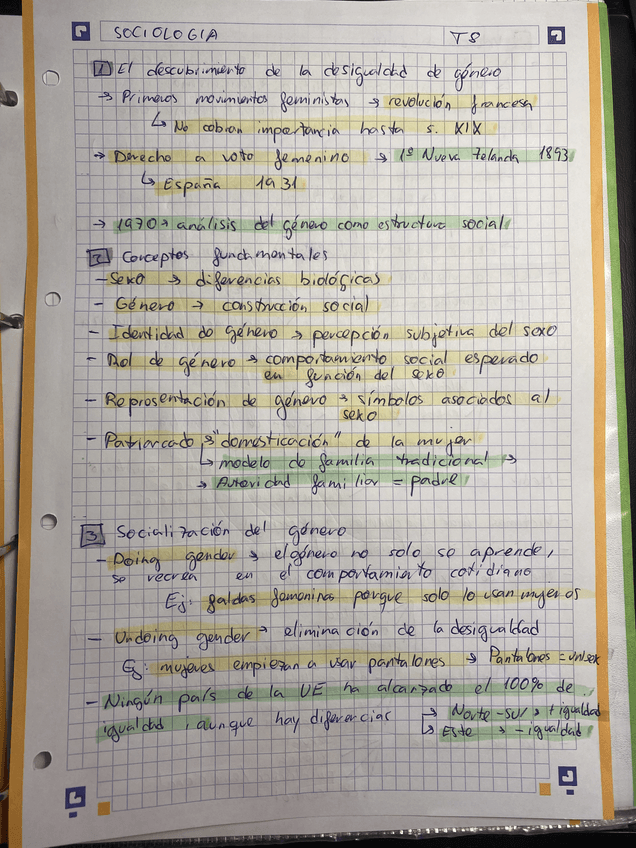 SOCIOLOGIA T8
1 El descubrimiento de la desigualdad de género
→ Primeros movimientos feministas → revolución francesa
↳ No cobran importancia hasta s. XIX
→ Derecho a voto femenino → 1º Nueva Zelanda 1893
↳ España 1931
→ 1970 → análisis del género como estructura social
2 Conceptos fundamentales
- Sexo → diferencias biológicas
- Género → construcción social
- Identidad de género → percepción subjetiva del sexo
- Rol de género → comportamiento social esperado
en función del sexo
- Representación de género → símbolos asociados al
sexo
- Patriarcado → "domesticación" de la mujer
↳ modelo de familia tradicional →
→ Autoridad familiar = padre
3 Socialización del género
- Doing gender → el género no solo se aprende,
se recrea en el comportamiento cotidiano
Ej: faldas femeninas porque solo lo usan mujeres
- Undoing gender → eliminación de la desigualdad
Ej: mujeres empiezan a usar pantalones → Pantalones = unisex
- Ningún país de la UE ha alcanzado el 100% de
igualdad, aunque hay diferencias → Norte-sur → + igualdad
↳ Este → - igualdad